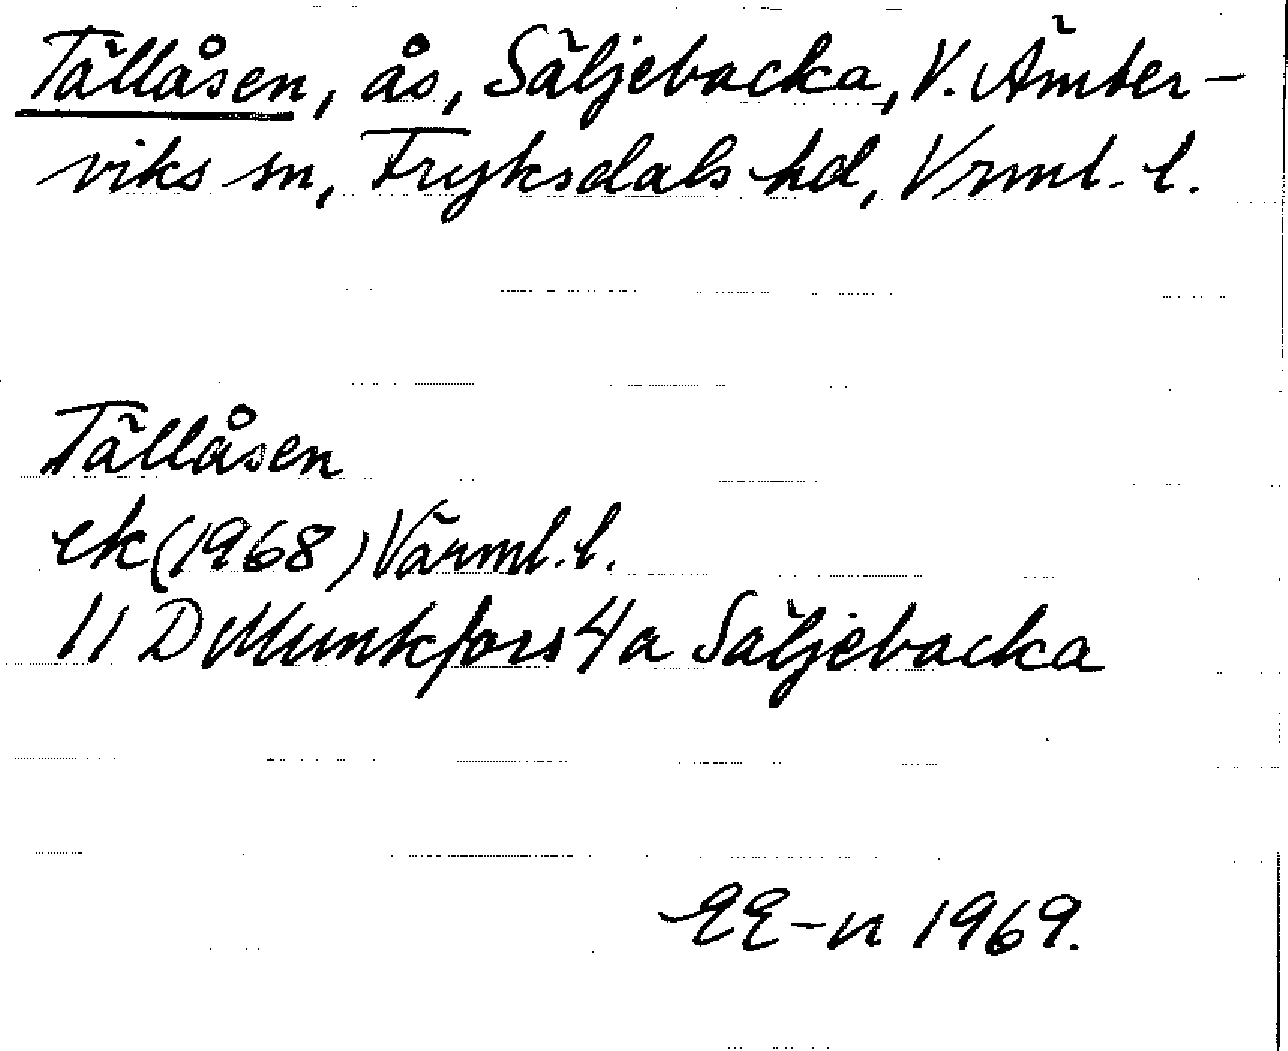 Tällåsen, ås, Säljebacka, V. Ämter-
viks sn, Fryksdals hd, Vrml. l.
Tällåsen
ek (1968) Värml. l.
11 D Munkfors 4 a Säljebacka
EE-n 1969.